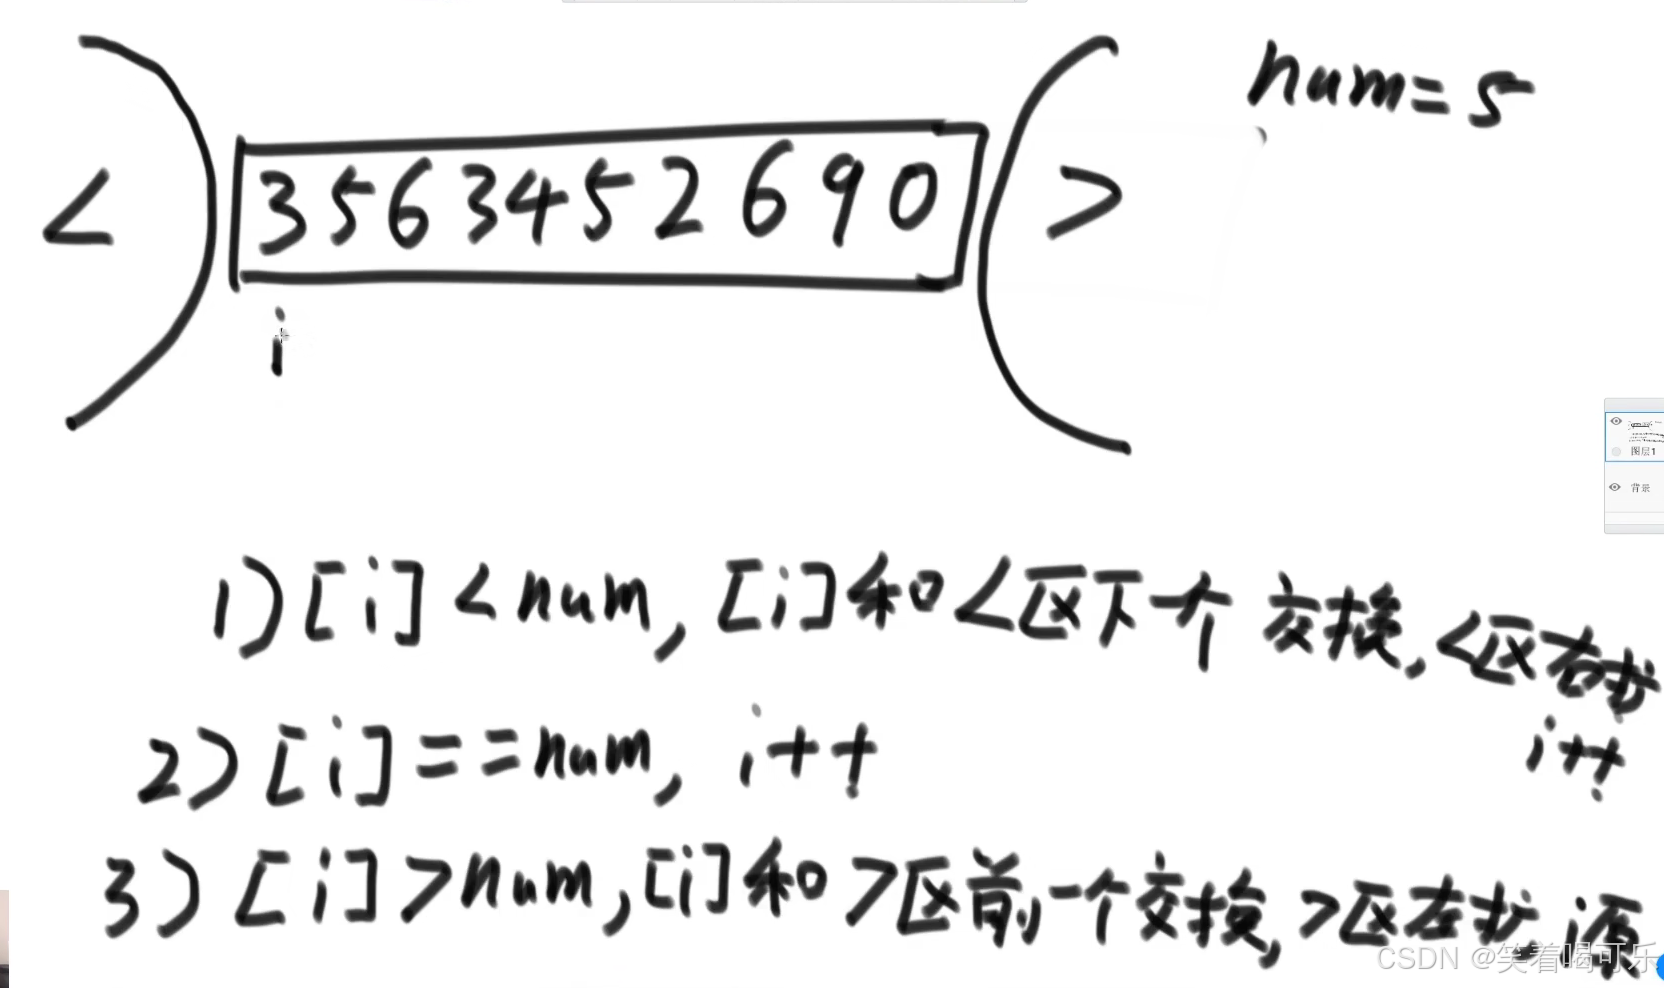 num=5
< 3 5 6 3 4 5 2 6 9 0 >
i
图层1
背景
1) [i] < num, [i]和<区下一个交换, <区右扩
i++
2) [i] == num, i++
3) [i] > num, [i]和>区前一个交换, >区左扩, i原
CSDN @笑着喝可乐